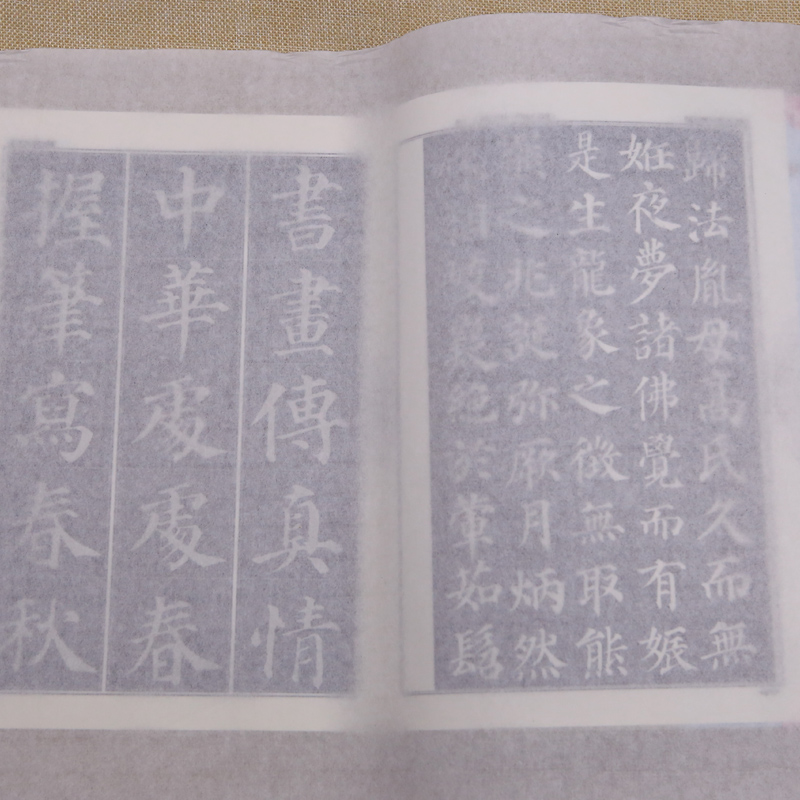 歸法胤母高氏久而無
姙夜夢諸佛覺而有娠
是生龍象之徵無取熊
之兆弥厥月炳然
相岐嶷絕於葷茹髫
書畫傳真情
中華處處春
握筆寫春秋